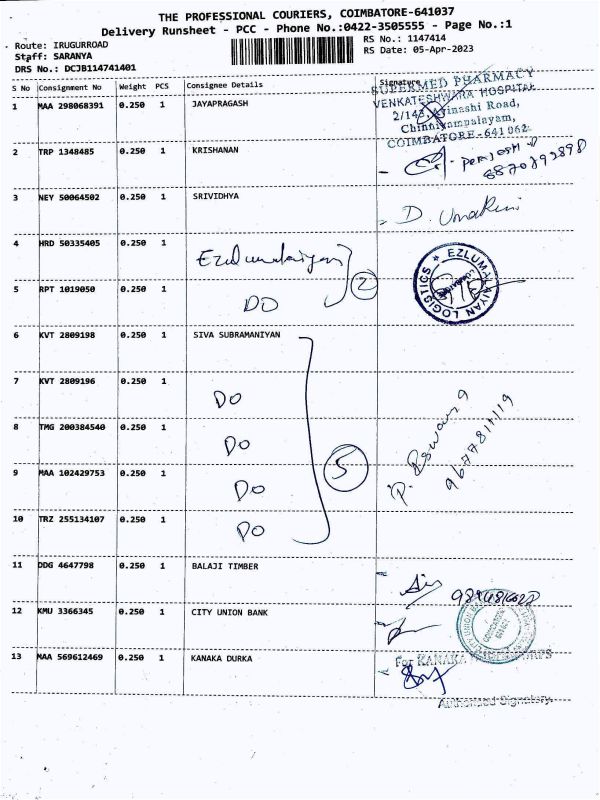 THE PROFESSIONAL COURIERS, COIMBATORE-641037
Delivery Runsheet - PCC - Phone No.:0422-3505555 - Page No.:1
Route: IRUGURROAD
RS No.: 1147414
Staff: SARANYA
RS Date: 05-Apr-2023
DRS No.: DCJB114741401
S No Consignment No Weight PCS Consignee Details Signature
1 MAA 298068391 0.250 1 JAYAPRAGASH
SUPERMED PHARMACY
VENKATESHWARA HOSPITAL
Avinashi Road,
Chinniyampalayam,
COIMBATORE-641 062
2 TRP 1348485 0.250 1 KRISHANAN
3 NEY 50064502 0.250 1 SRIVIDHYA
4 HRD 50335405 0.250 1
EZLUMALAIYAN LOGISTICS
5 RPT 1019050 0.250 1 DO 2
6 KVT 2809198 0.250 1 SIVA SUBRAMANIYAN
7 KVT 2809196 0.250 1 DO
8 TMG 200384540 0.250 1 DO
9 MAA 102429753 0.250 1 DO 5
10 TRZ 255134107 0.250 1 DO
11 DDG 4647798 0.250 1 BALAJI TIMBER
12 KMU 3366345 0.250 1 CITY UNION BANK
13 MAA 569612469 0.250 1 KANAKA DURKA
For KANAKA
Authorised Signatory.